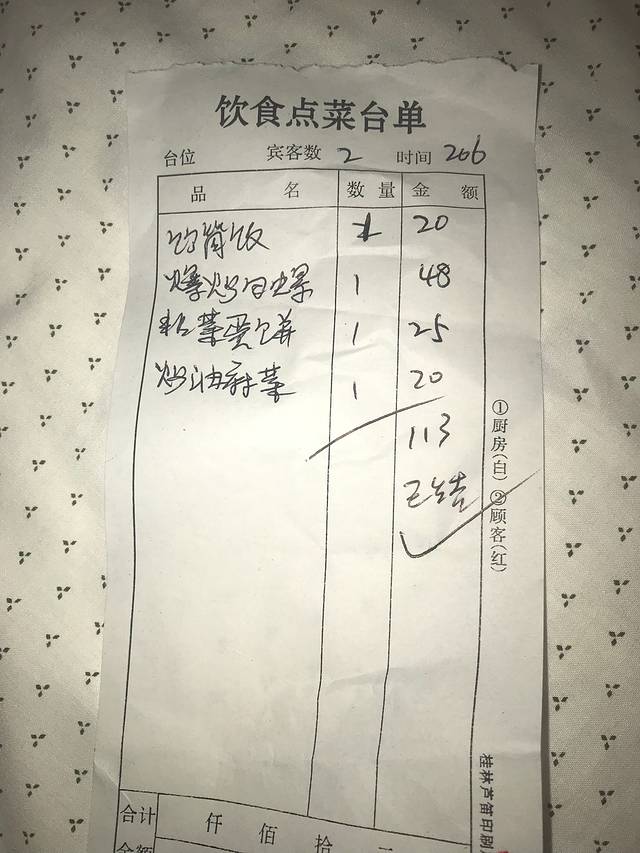 饮食点菜台单
台位 宾客数 2 时间 206
品名 数量 金额
竹筒饭 1 20
爆炒田螺 1 48
1 25
炒油麻菜 1 20
113
已结
①厨房(白) ②顾客(红)
桂林芦笛印刷
合计 仟 佰 拾
金额